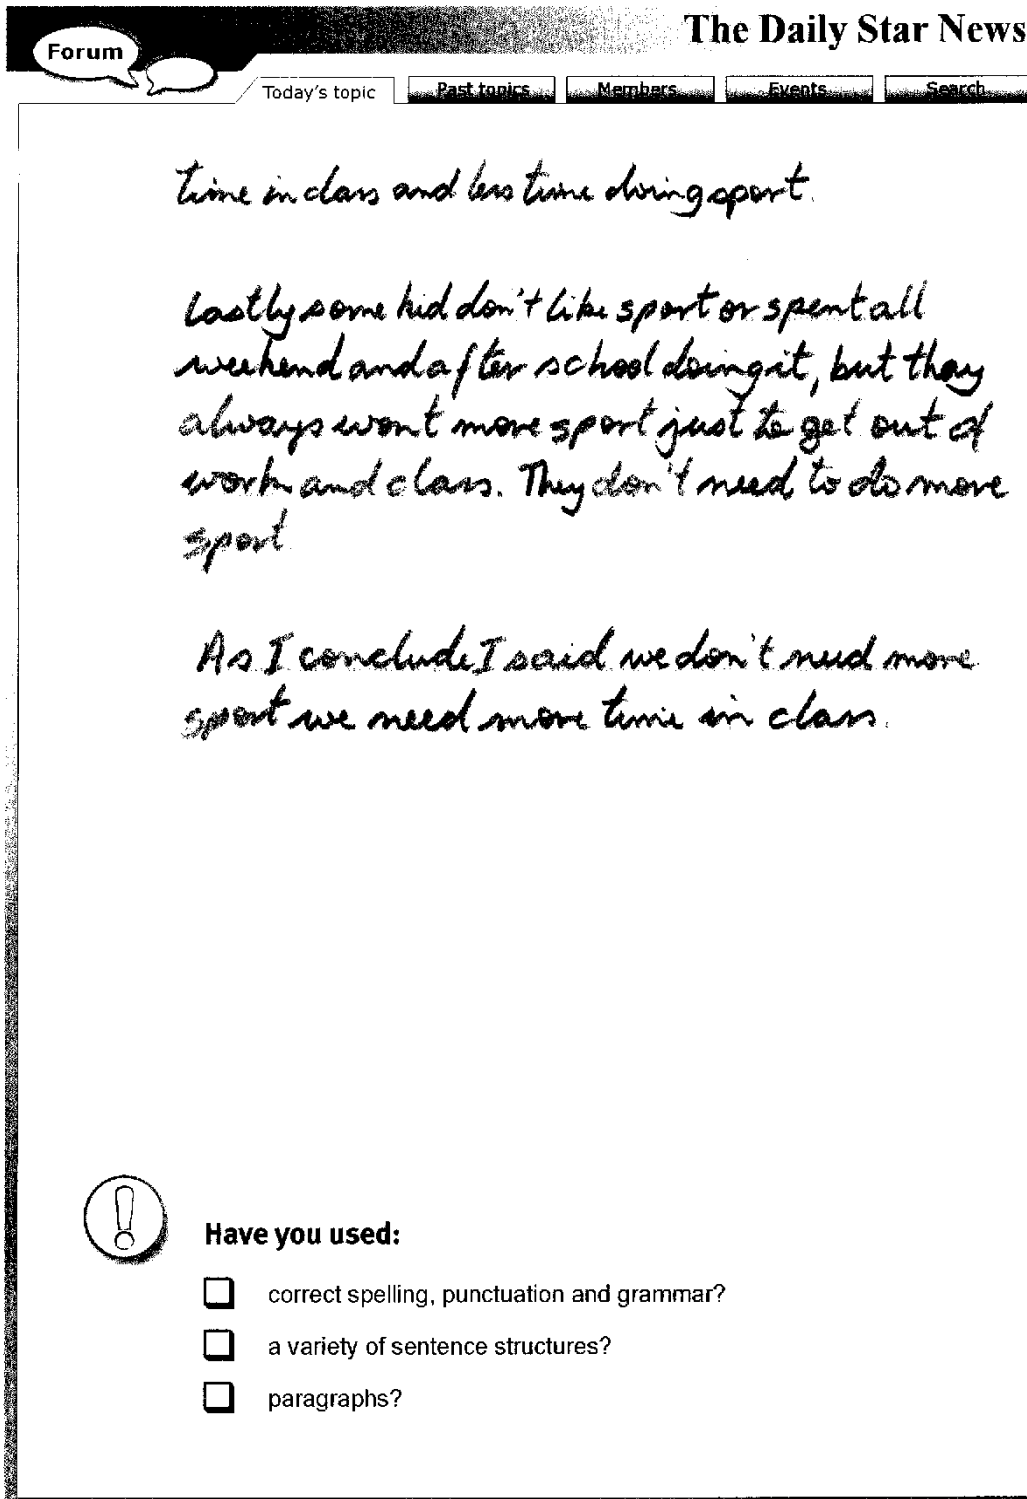 The Daily Star News
Forum
Today's topic
Past topics
Members
Events
Search
time in class and less time doing sport.
Lastly some kid don't like sport or spent all
weekend and after school doing it, but thay
always wont more sport just to get out of
work and class. They don't need to do more
sport.
As I conclude I said we don't need more
sport we need more time in class.
Have you used:
correct spelling, punctuation and grammar?
a variety of sentence structures?
paragraphs?